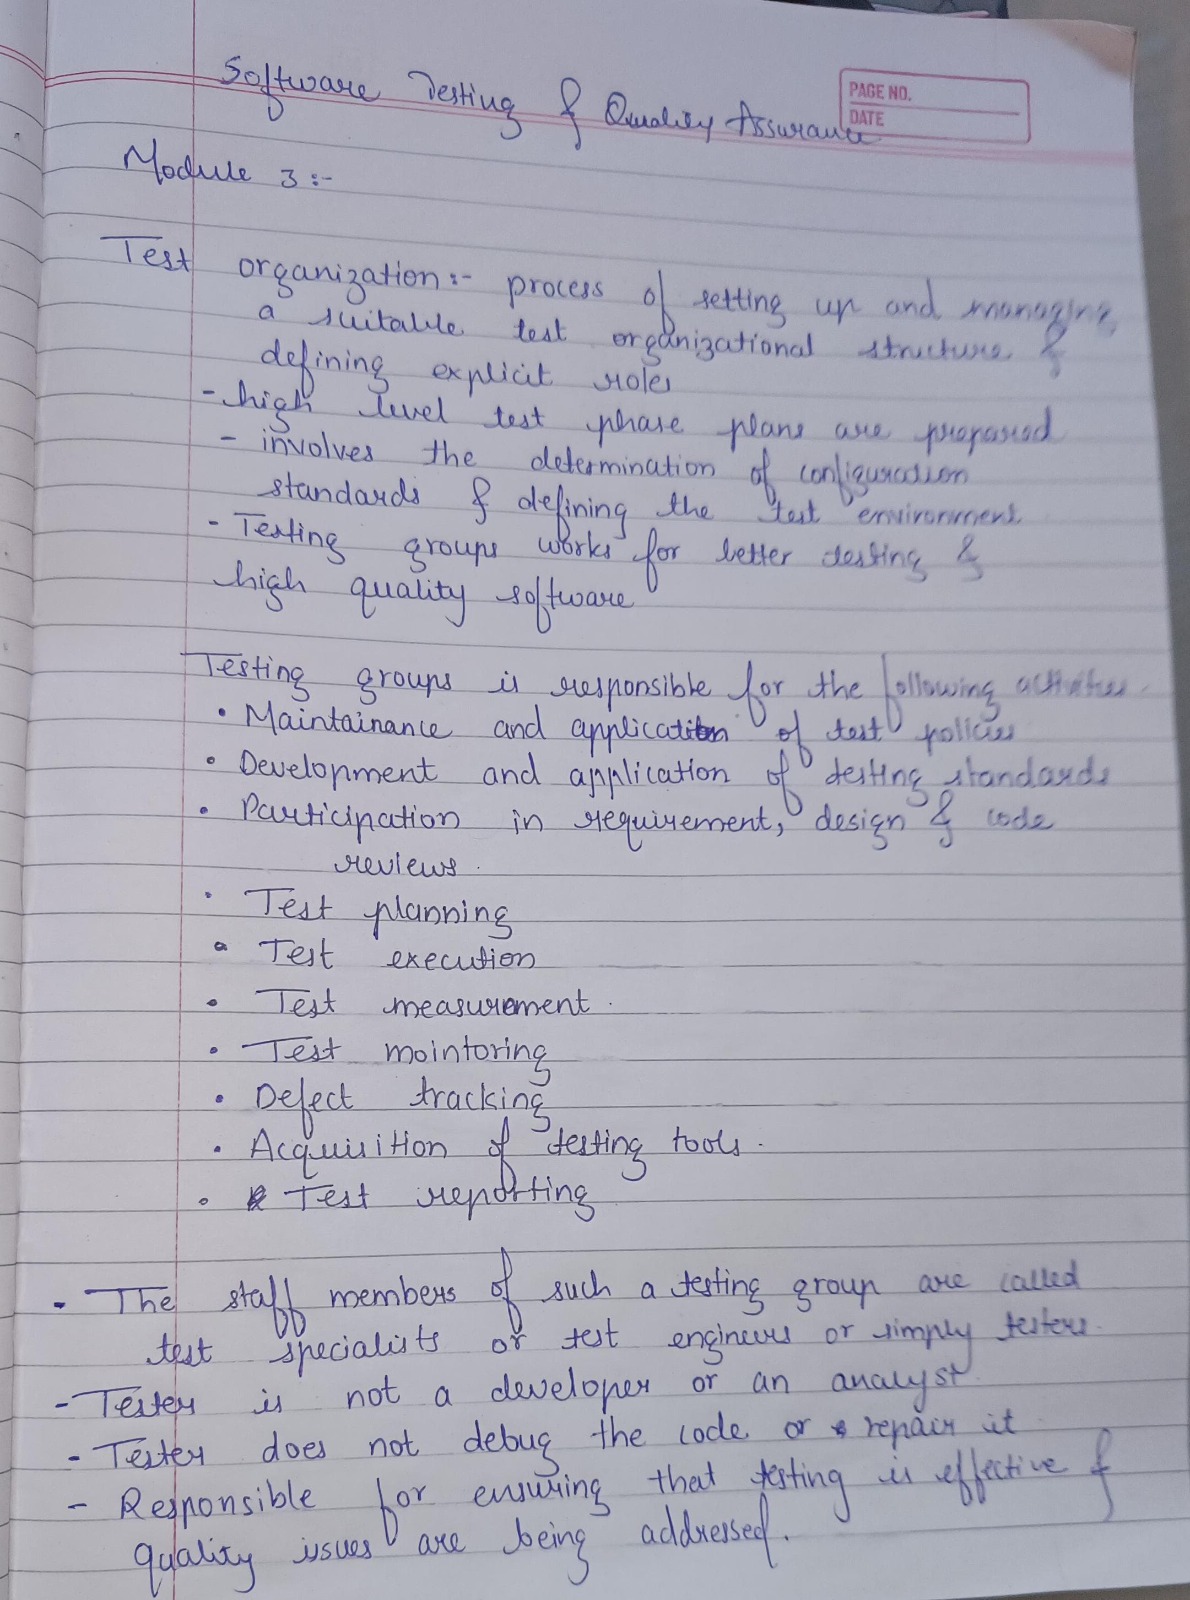 Software Testing & Quality Assurance
PAGE NO.
DATE
Module 3 :-
Test organization :- process of setting up and managing
a suitable test organizational structure &
defining explicit roles
- high level test phase plans are prepared
- involves the determination of configuration
standards & defining the test environment
- Testing groups works for better testing &
high quality software
Testing groups is responsible for the following activities
• Maintainance and application of test policies
• Development and application of testing standards
• Participation in requirement, design & code
reviews.
• Test planning
• Test execution
• Test measurement.
• Test mointoring
• Defect tracking
• Acquisition of testing tools.
• Test reporting
- The staff members of such a testing group are called
test specialists or test engineers or simply testers.
- Tester is not a developer or an analyst.
- Tester does not debug the code or repair it.
- Responsible for ensuring that testing is effective &
quality issues are being addressed.